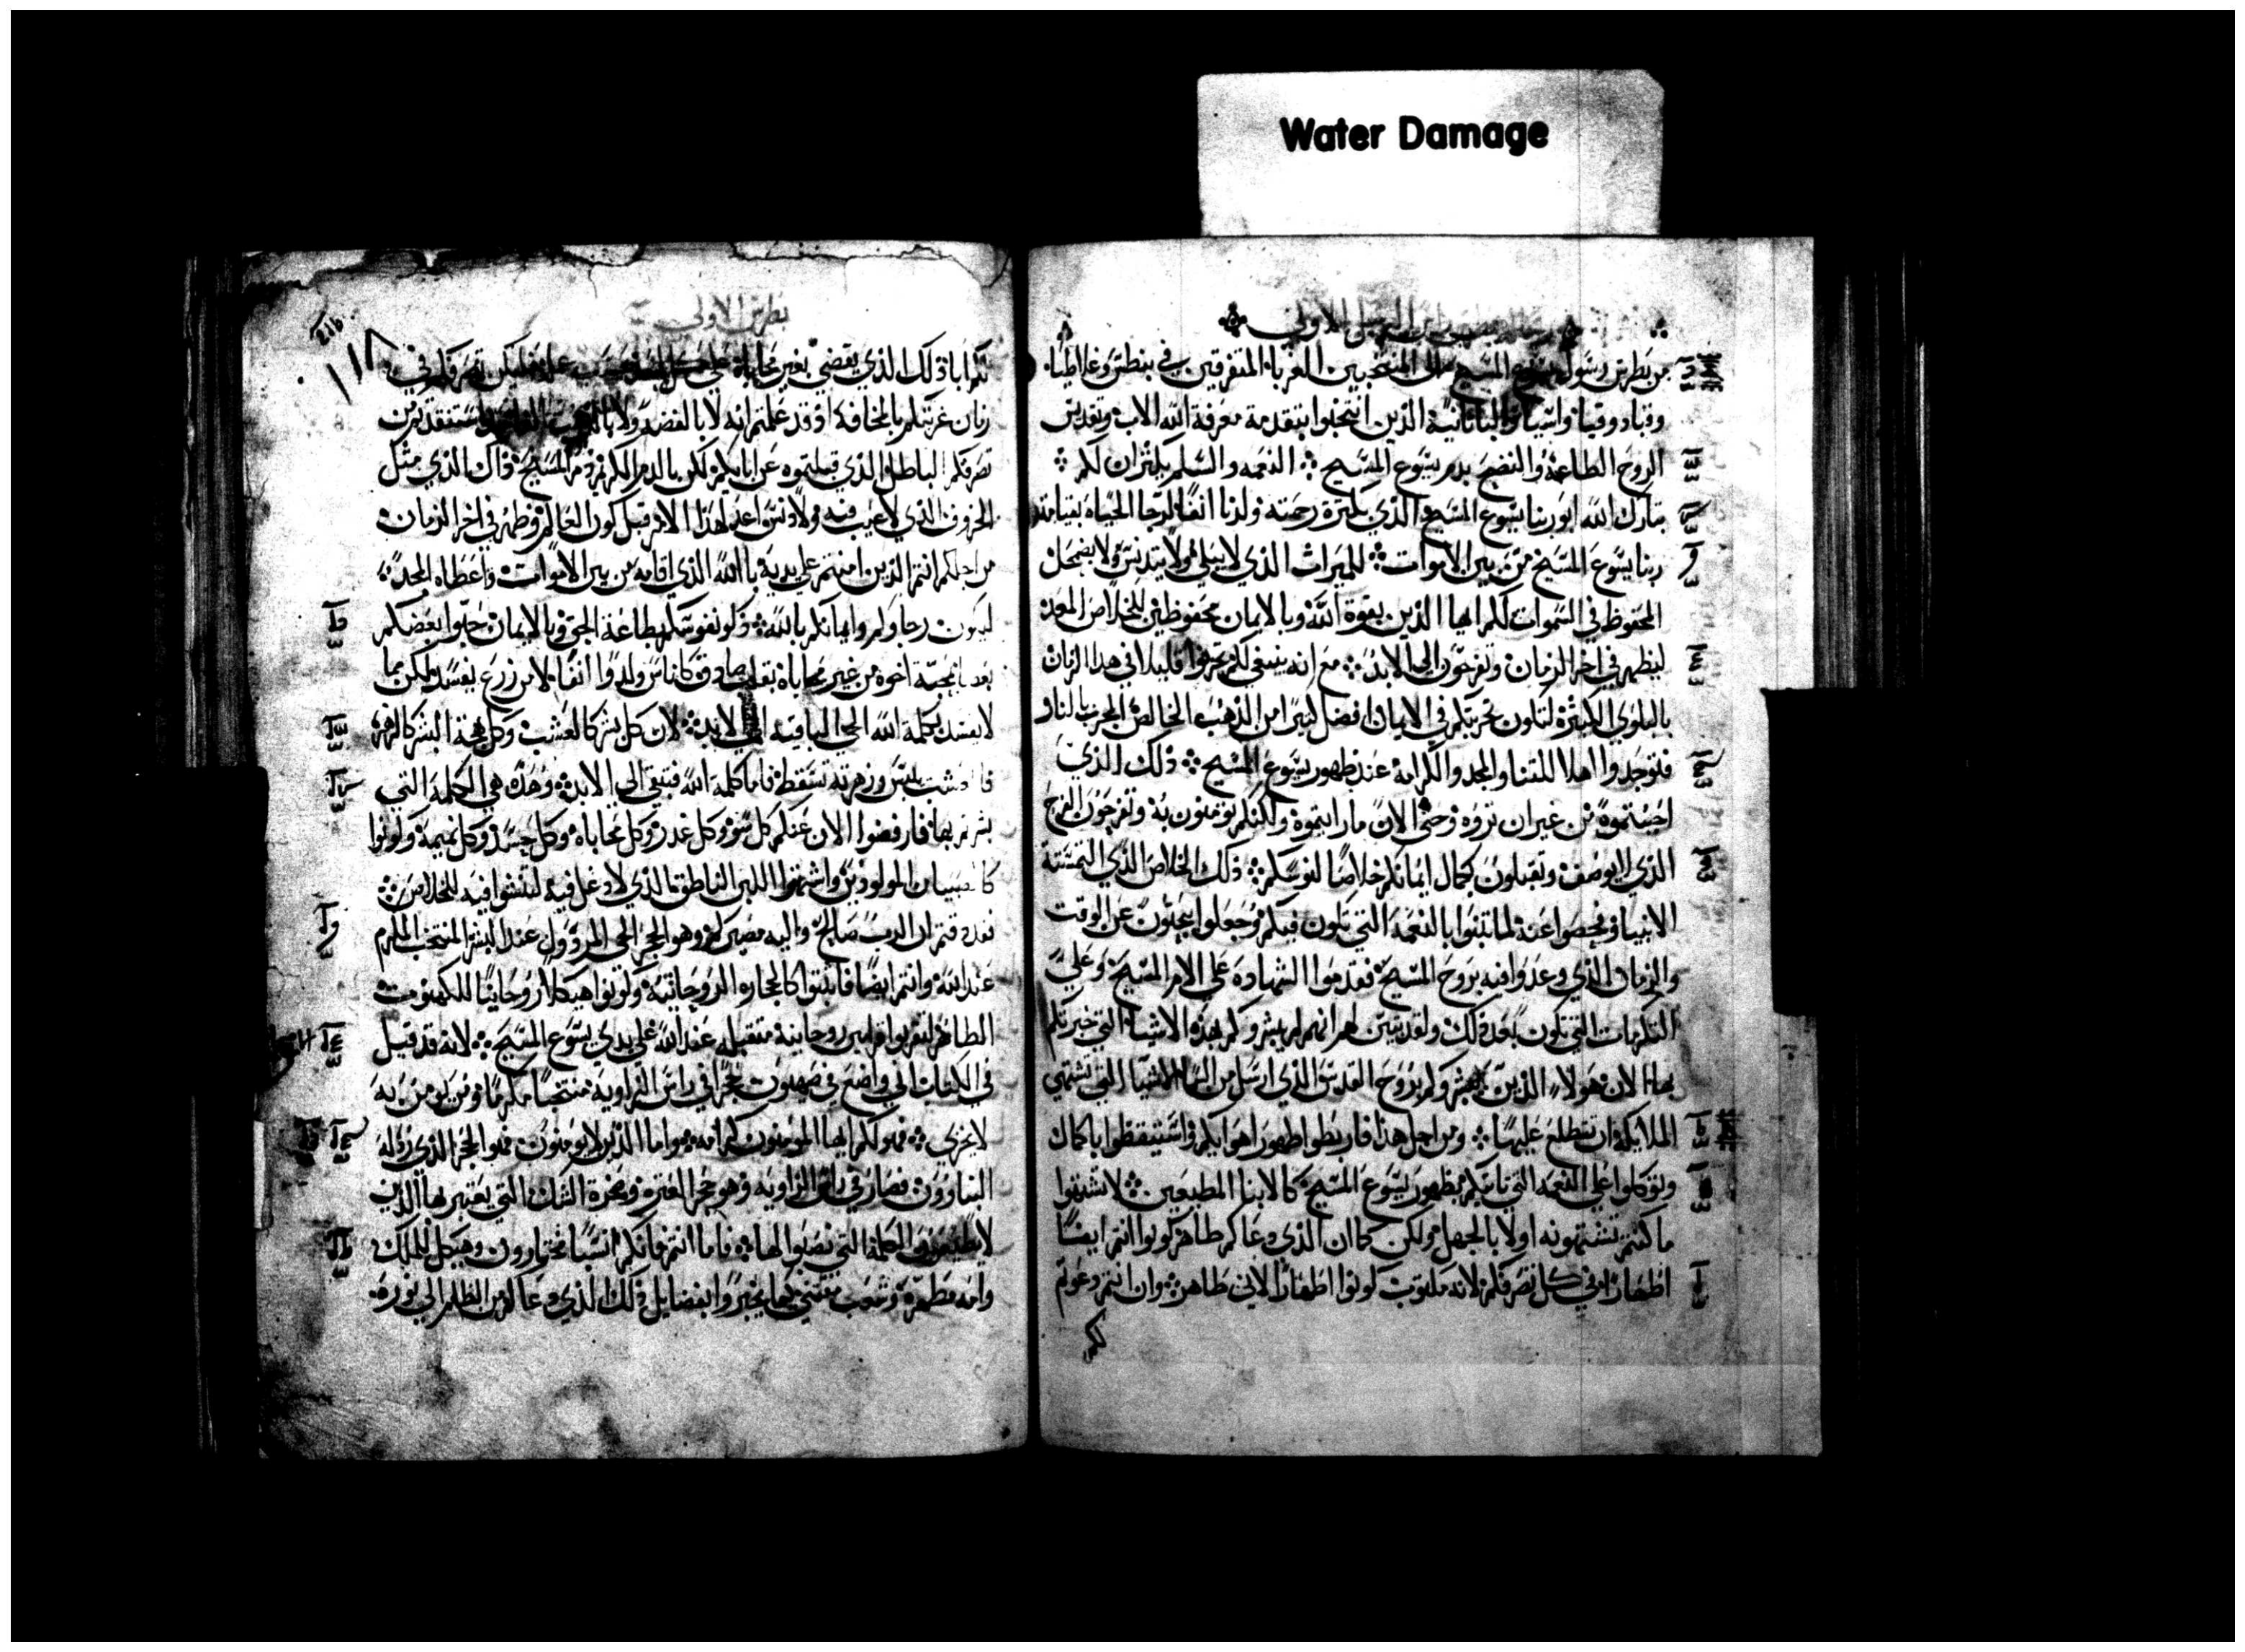 Water Damage
الاولي
من بطرس رسول يسوع المسيح الى المنتخبين الغربا المتفرقين في بنطس وغلاطيا
وقباد وقيا واسيا والبثانية الذين انتخبوا بتقدمة معرفة الله الاب وتقديس
الروح الطاعة والنضح بدم يسوع المسيح النعمه والسلم يكثران لكم
تبارك الله ابو ربنا يسوع المسيح الذي بكثرة رحمته ولدنا انفا لرجا الحياه بقيامة
ربنا يسوع المسيح من بين الاموات للميراث الذي لا يبلي ولا يتدنس ولا يضمحل
المحفوظ في السموات لكم ايها الذين بقوة الله وبالايمان محفوظين للخلاص المعد
ليظهر في اخر الزمان وتفرحون الي الابد مع انه ينبغي لكم قليلا في هدا الزمان
بالبلوي الكثيرة لتكون تجربتكم في الايمان افضل كثيرا من الذهب الخالص المجرب بالنار
فتوجدوا اهلا للثنا والمجد والكرامة عند ظهور يسوع المسيح ذلك الذي
احببتموه من غير ان تروه وحتى الان ما رايتموه ولكنكم تومنون به وتفرحون الفرح
الذي لا يوصف وتقبلون كمال ايمانكم خلاصا لنفوسكم ذلك الخلاص الذي التمسته
الانبيا وفحصوا عنه لما تنبوا بالنعمة التي تكون فيكم وجعلوا يبحثون عن الوقت
والزمان الذي وعدوا فيه بروح المسيح فقدموا الشهادة على الام المسيح وعلي
التكرمات التي تكون بعد ذلك ولقد تبين لهم انهم لم يبشروكم بهذه الاشيا التي خبرتكم
بها الان هولاء الذين بشروكم بروح القدس الذي ارسل من السما الاشيا التي تشتهي
الملايكة ان تتطلع عليها ومن اجل هذا فاربطوا ظهور اهوايكم واستيقظوا باكمال
وتوكلوا على النعمه التي تاتيكم بظهور يسوع المسيح كالابنا المطيعين لا تشتهوا
ما كنتم تشتهونه اولا بالجهل ولكن كما ان الذي دعاكم طاهر كونوا انتم ايضا
اطهارا في كل تصرفكم لانه مكتوب كونوا اطهارا لاني طاهر وان انتم دعوتم
لكم
بطرس الاولي
١١٨
لكم ابا ذلك الذي يقضي بغير محاباة على كل تصرفكم في
زمان غربتكم بالمخافة اذ قد علمتم انه لا بالفضه ولا استنقذتم من
تصرفكم الباطل الذي قبلتموه عن ابايكم لكن بالدم الكريم دم المسيح ذاك الذي مثل
الخروف الذي لا عيب فيه ولا دنس اعد لهذا الامر قبل كون العالم وظهر في اخر الزمان
من اجلكم انتم الذين امنتم علي يديه بالله الذي اقامه من بين الاموات واعطاه المجد
ليكون رجاوكم وايمانكم بالله زكوا نفوسكم بطاعة الحق وبالايمان حبوا بعضكم
بعضا بمحبة اخوه من غير محاباة بقلب صادق كاناس ولدوا انفا لا من زرع يفسد ولكن بما
لا يفسد بكلمة الله الحي الباقيه الي الابد لان كل بشر كالعشب وكل بهجة البشر كالزهر
فالعشب يبس وزهرته تسقط فاما كلمة الله فتبقي الي الابد وهذه هي الكلمة التي
بشرتم بها فارفضوا الان عنكم كل سو وكل غدر وكل محاباه وكل حسد وكل نميمة وكونوا
كالصبيان المولودين واشتهوا اللبن الناطق الذي لا دغل فيه لتنشوا فيه للخلاص
فقد ذقتم ان الرب صالح واليه مصيركم وهو الحجر الحي المرذول عند البشر المنتخب المكرم
عند الله وانتم ايضا فابتنوا كالحجاره الروحانية وكونوا هيكلا روحانيا للكهنوت
الطاهر لتقربوا قرابين روحانية متقبله عند الله علي يدي يسوع المسيح لانه قد قيل
في الكتاب اني واضع في صهيون حجرا في راس الزاويه منتخبا مكرما ومن يومن به
لا يخزي فهو لكم ايها المومنون كرامه واما الذين لا يومنون فهو الحجر الذي رذله
البناوون فصار في راس الزاويه وهو حجر العثره وصخرة الشك التي يعثر بها الذين
لا يطيعون الكلمة التي نصبوا لها فاما انتم فانكم انسبا مختارون وهيكل للملك
وامه مطهره وشعب مقتني كيما يخبروا بفضايل ذلك الذي دعاكم من الظلم الي نوره